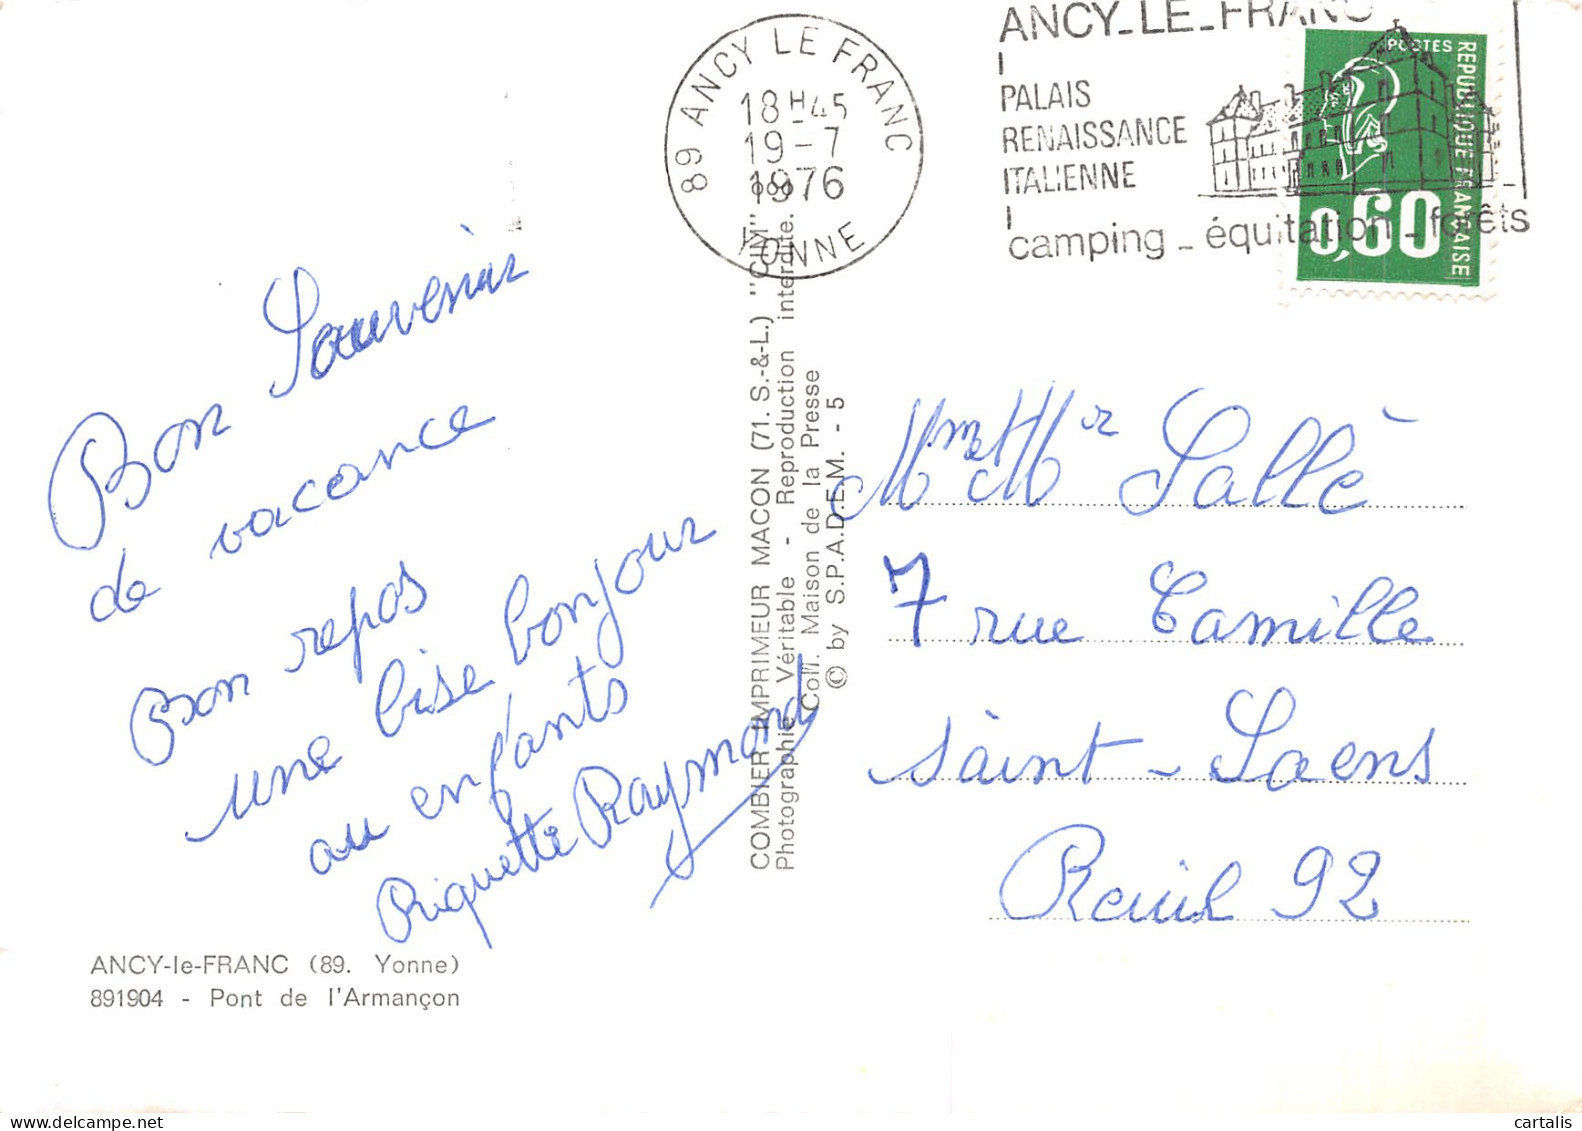 ANCY-LE-FRANC
PALAIS
RENAISSANCE
ITALIENNE
camping - équitation - forêts
89 ANCY LE FRANC
18H45
19-7
1976
YONNE
POSTES
REPUBLIQUE FRANÇAISE
0,60
Bon Souvenir
de vacance
Bon repos
une bise bonjour
au enfants
Riquette Raymond
COMBIER IMPRIMEUR MACON (71. S.-&-L.) "CIM"
Photographie Véritable - Reproduction interdite.
Coll. Maison de la Presse
© by S.P.A.D.E.M. - 5
Mme Mr Sallè
7 rue Camille
Saint-Saens
Reuil 92
ANCY-le-FRANC (89. Yonne)
891904 - Pont de l'Armançon
cartalis